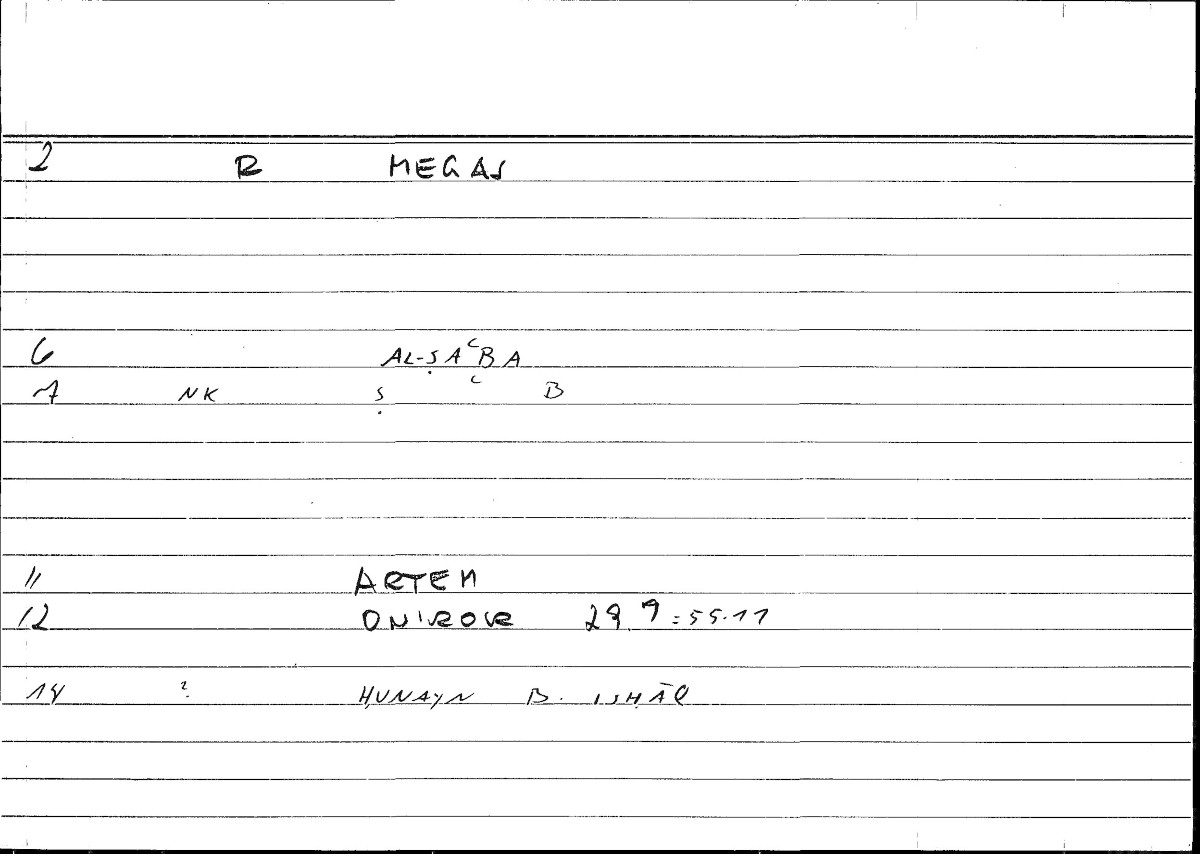 2 R MEGAS
6 AL-ṢAʿBA
7 NK Ṣ ʿ B
11 ARTEM
12 ONIROKR 29.9 = 55.11
14 ? ḤUNAYN B. ISḤĀQ